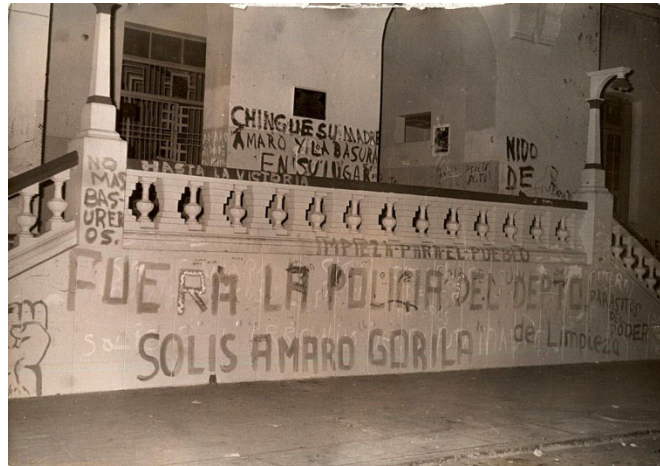 CHINGUE SU MADRE
AMARO Y LA BASURA
EN SU LUGAR
NIDO
DE
NO
MAS
BAS-
URER
OS.
HASTA LA VICTORIA
LIMPIEZA PARA EL PUEBLO
FUERA LA POLICIA DEL "DEPTO.
de Limpieza
PARASITOS
DEL
PODER
SOLIS AMARO GORILA